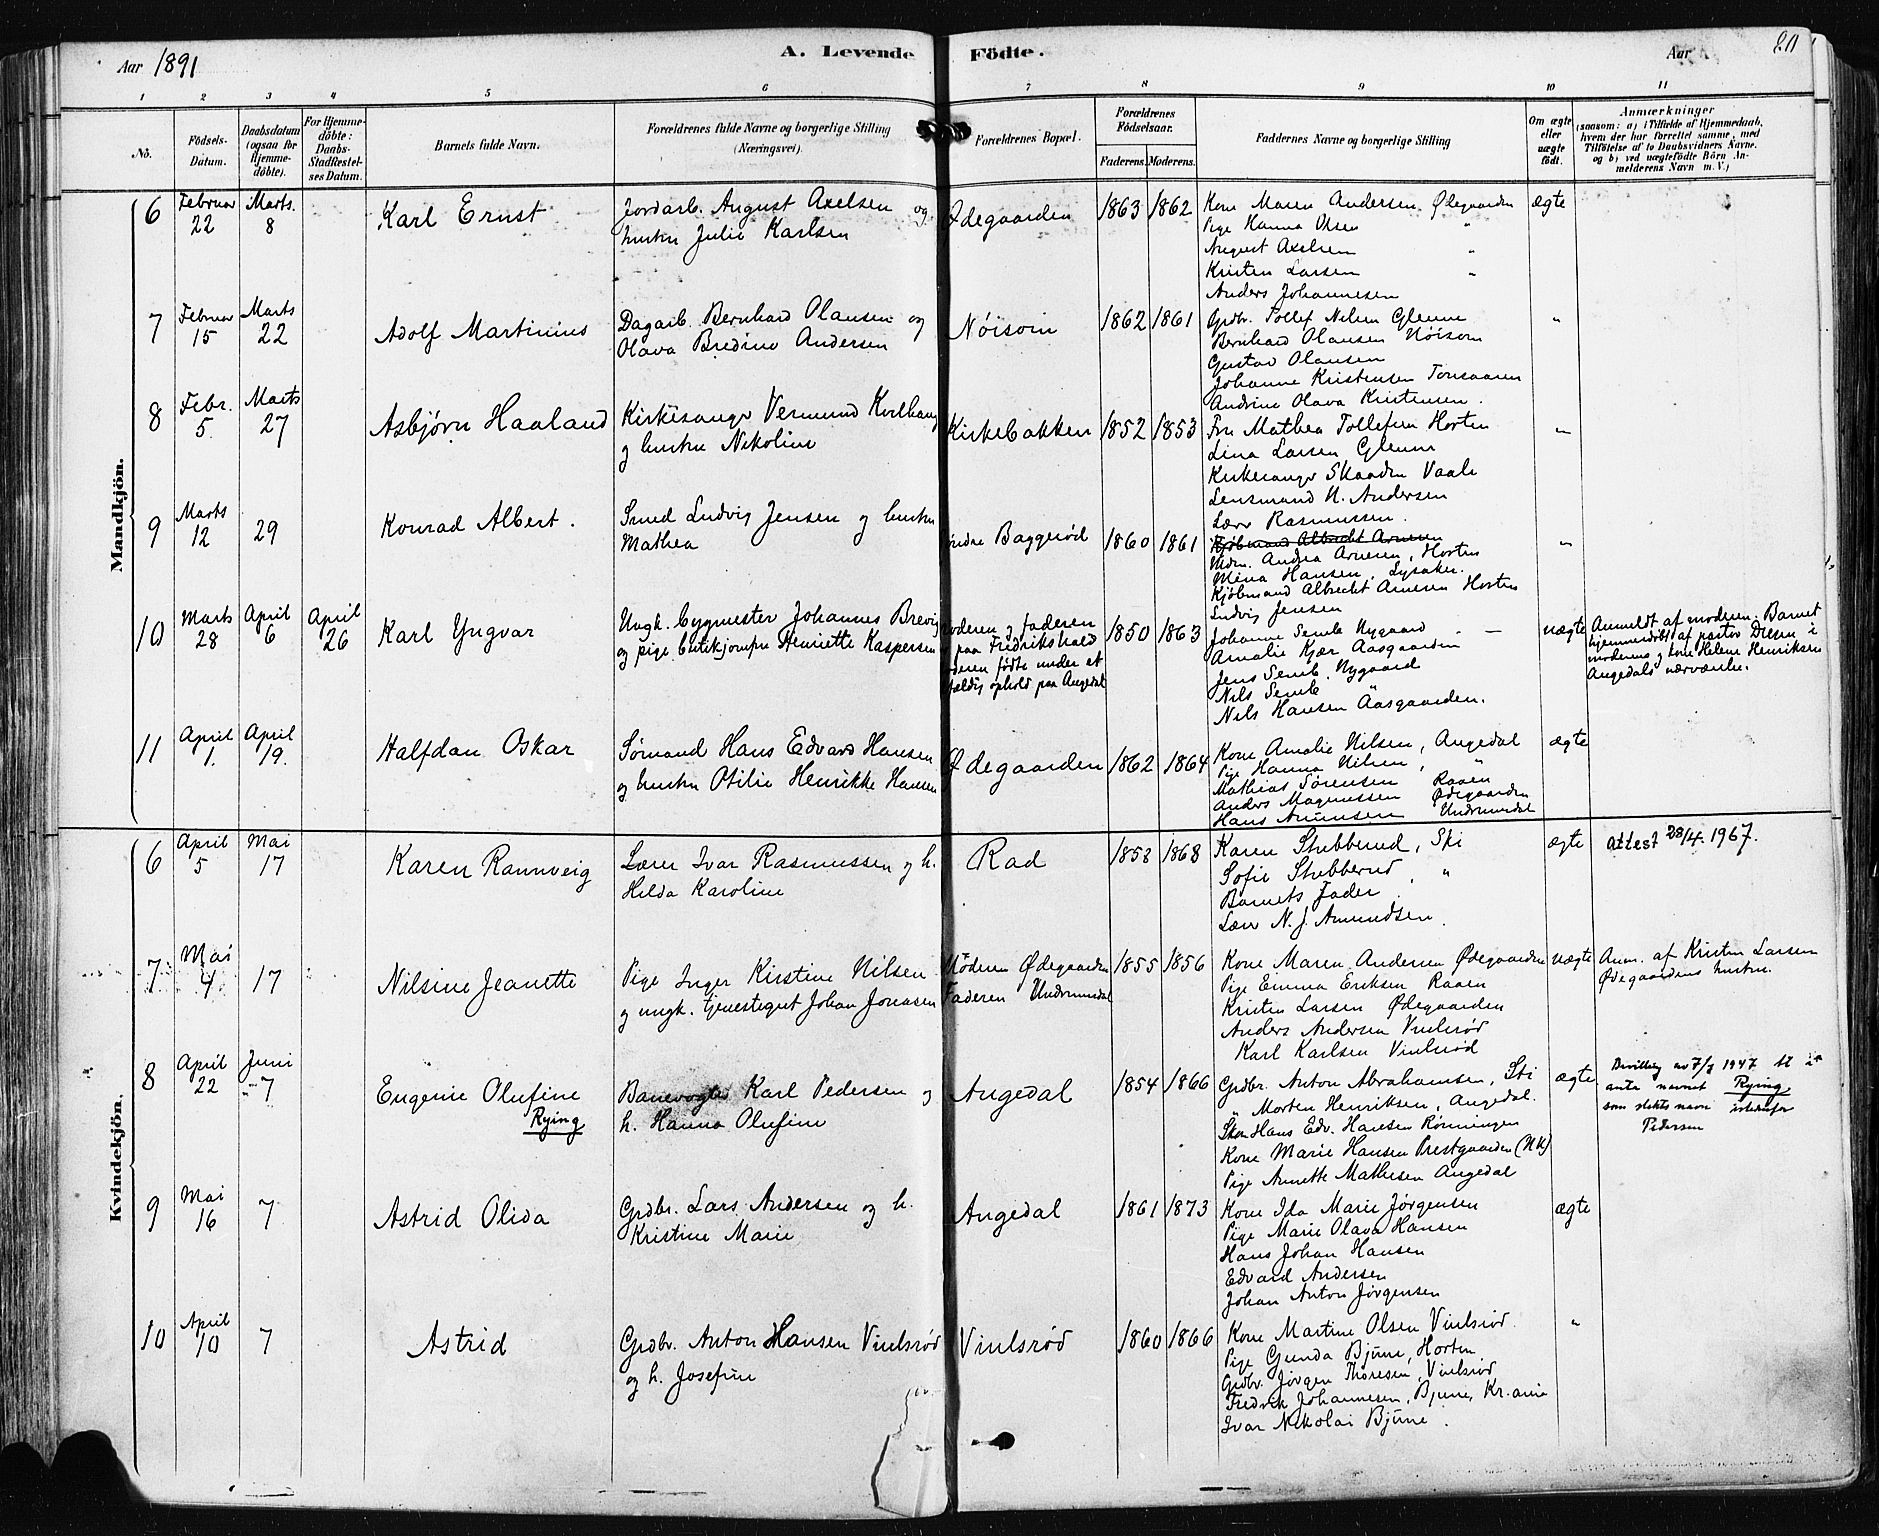 Aar 1891
A. Levende Födte.
Aar
80
1 2 3 4 5 6 7 8 9 10 11
No.
Födsels-Datum.
Daabsdatum (ogsaa for Hjemme-döbte).
For Hjemme-döbte: Daabs-Stadfæstel-ses Datum.
Barnets fulde Navn.
Forældrenes fulde Navne og borgerlige Stilling (Næringsvei).
Forældrenes Bopæl.
Forældrenes Födselsaar.
Faderens. Moderens.
Faddernes Navne og borgerlige Stilling
Om ægte eller uægte födt.
Anmærkninger
(saasom: a) i Tilfælde af Hjemmedaab, hvem der har forrettet samme, med Tilföielse af to Daabsvidners Navne. og b) ved uægtefödte Börn An-melderens Navn m. V.)
Mandkjön.
6 Februar 22 Marts. 8 Karl Ernst
Jordarb. August Axelsen og
hustru Julie Karlsen
Ødegaarden 1863 1862
Kone Maren Andersen, Ødegaarden ægte
Pige Hanna Olsen "
August Axelsen "
Kristen Larsen "
Anders Johannesen
7 Februar 15 Marts 22 Adolf Martinius
Dagarb. Bernhard Olausen og
Olava Bredine Andersen
Nöisom 1862 1861
Grdbr. Tollef Nilsen Glenne "
Bernhard Olausen Nöisom
Gustav Olausen
Johanne Kristensen Tonsaasen
Andrine Olava Kristensen.
8 Febr. 5. Marts 27 Asbjørn Haaland
Kirkesanger Vermund Kvilhaug
og hustru Nikoline
Kirkebakken 1852 1853
Fru Mathea Tollefsen Horten "
Lina Larsen Glenne
Kirkesanger Skaaden Vaale
Lensmand N. Andersen
Lærer Rasmussen.
9 Marts 12 29 Konrad Albert.
Smed Ludvig Jensen og hustru
Mathea
Søndre Baggerød 1860 1861
Kjøbmand Albrecht Arnesen "
Mdm. Andrea Arnesen, Horten
Mina Hansen, Lysaker.
Kjöbmand Albrecht Arnesen Horten
Ludvig Jensen
10 Marts 28 April 6 April 26 Karl Yngvar
Ungk. bygmester Johannes Brevig
og pige butikjomfru Henriette Kaspersen
moderen og faderen
paa Fredrikshald
deren födte under et
fældig ophold paa Angedal
1850 1863
Johanne Semb Nygaard
Amalie Kjær Aasgaarden
Jens Semb. Nygaard
Nils Semb
Nils Hansen Aasgaarden.
uægte
Anmeldt af moderen. Barnet
hjemmedöbt af pastor Diesen i
moderens og kone Helene Henriksen
Angedals nærværelse.
11 April 1. April 19. Halfdan Oskar
Sømand Hans Edvard Hansen
og hustru Otilie Henrikke Hansen
Ødegaarden 1862 1864
Kone Amalie Nilsen, Angedal ægte
Pige Hanna Nilsen, "
Mathias Sørensen Raaen
Anders Magnussen Ødegaarden
Hans Amundsen Undrumsdal
Kvindekjön.
6 April 5 Mai 17 Karen Rannveig
Lærer Ivar Rasmussen og h.
Hilda Karoline
Rad 1858 1868
Karen Stubberud, Ski ægte
Sofie Stubberud, "
Barnets Fader
Lærer N. J. Amundsen.
Attest 28/4. 1967.
7 Mai 4 17 Nilsine Jeanette
Pige Inger Kirstine Nilsen
og ungk. tjenestegut Johan Jonasen
Möderen Ødegaarden
Faderen Undrumsdal
1855 1856
Kone Maren Andersen Ødegaarden uægte
Pige Emma Eriksen Raaen
Kristen Larsen Ødegaarden
Anders Andersen Vivlsrød
Karl Karlsen Vivlsrød
Anm. af Kristen Larsen
Ødegaardens hustru.
8 April 22 Juni 7 Eugenie Olufine
Rying
Banevogter Karl Pedersen og
h. Hanna Olufine
Angedal 1854 1866
Grdbr. Anton Abrahamsen, Sti ægte
" Morten Henriksen, Angedal.
Skom Hans Edv. Hansen Rönningen
Kone Marie Hansen Prestgaarden (N.K.)
Pige Annette Mathisen Angedal
Bevilling av 7/7 1947 til å
anta navnet Rying
som slektsnavn istedenfor
Pedersen
9 Mai 16 7 Astrid Olida
Grdbr. Lars Andersen og h.
Kristine Marie
Angedal 1861 1873
Kone Ida Marie Jørgensen ægte
Pige Marie Olava Hansen
Hans Johan Hansen
Edvard Andersen
Johan Anton Jørgensen
10 April 10 7 Astrid
Grdbr. Anton Hansen Vivlsrød
og h. Josefine
Vivlsrød 1860 1866
Kone Martine Olsen Vivlsrød. "
Pige Gunda Bjune, Horten
Grdbr. Jörgen Thoresen, Vivlsrød
Fredrik Johannesen, Bjune, Kr.ania
Ivar Nikolai Bjune.